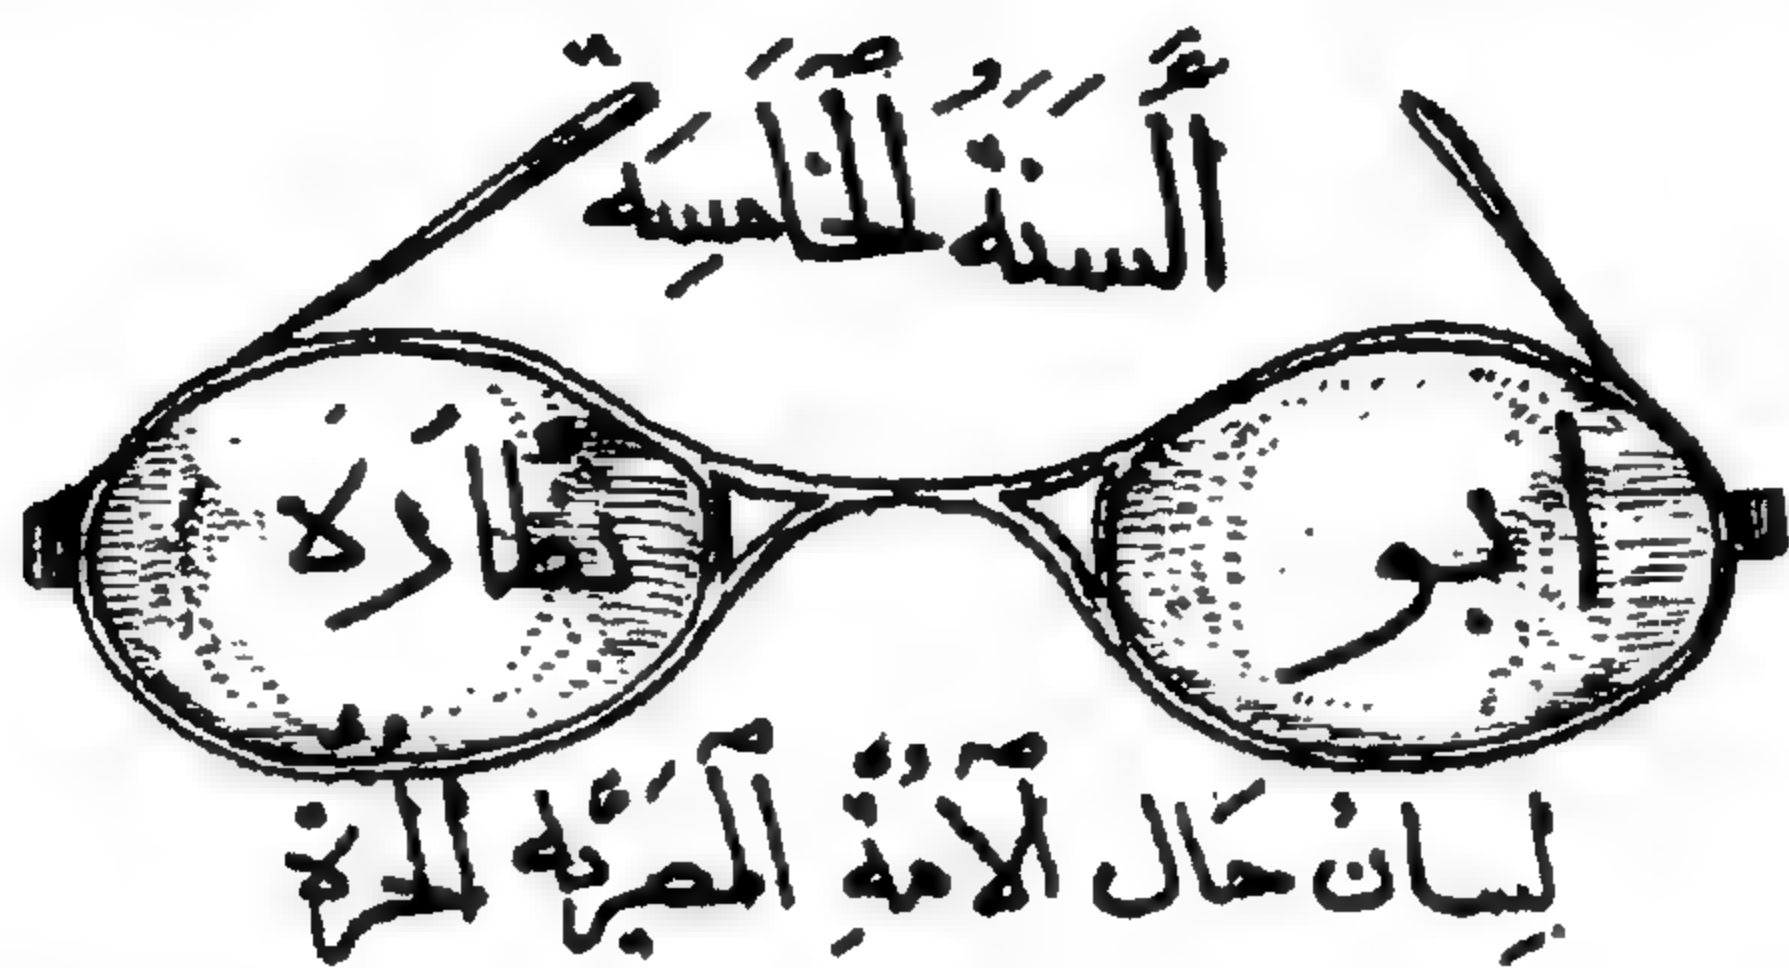 ألسَّنَةُ الخَامِسَة
ابو نظَّارَة
لِسانُ حَال الأمةِ المصريَّة الحرة